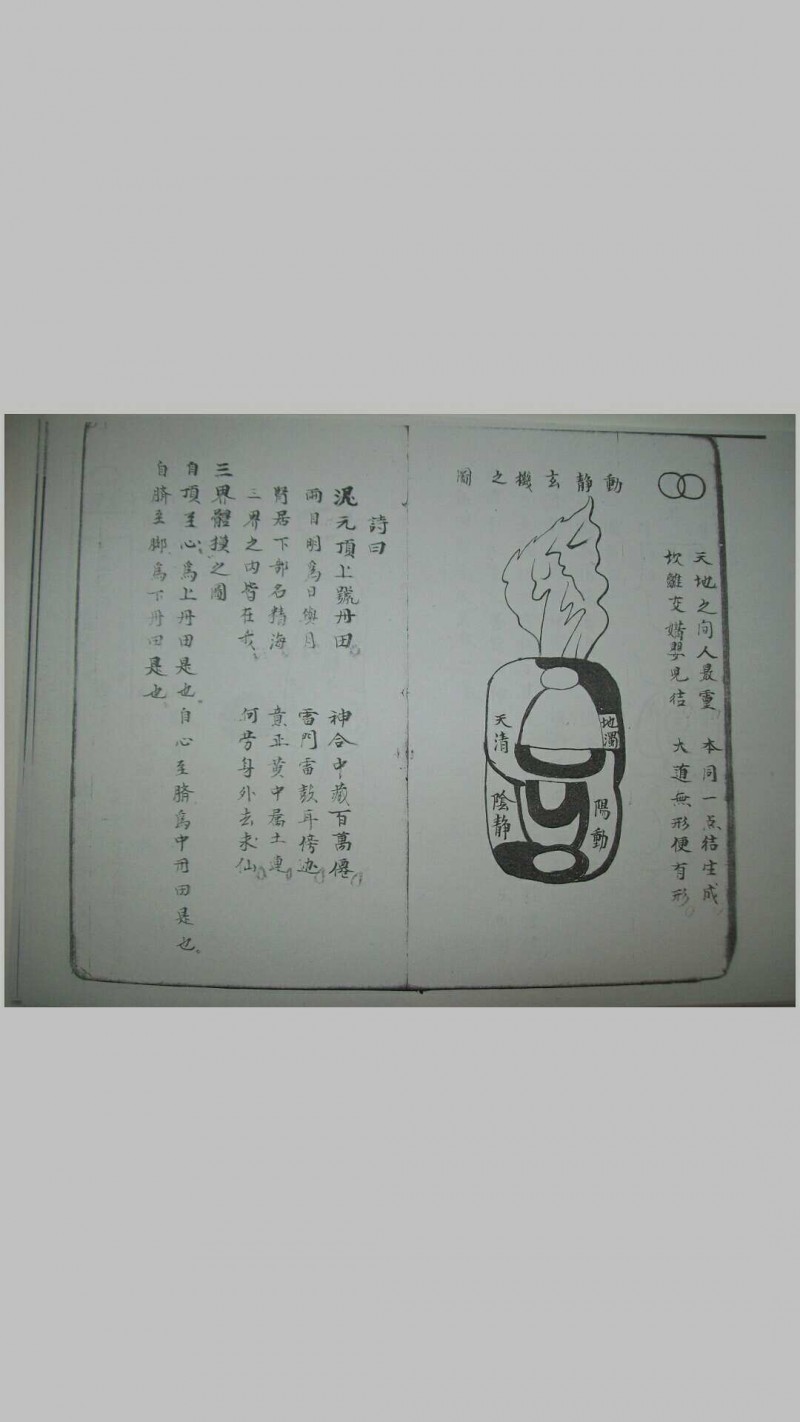 天地之间人最靈 本同一点結生成
坎離交媾嬰兒结 大道無形便有形
動靜玄機之圖
地濁
天清
陽動
陰静
詩曰
泥元頂上號丹田 神合中藏百萬僊
兩目明為日與月 雷門雷鼓耳傍
野居下部名精海 意正黄中居土
三界之内皆在 何劳身外去求仙
三界體摸之圖
自頂至心為上丹田是也 自心至臍為中丹田是也
自臍至脚為下丹田是也